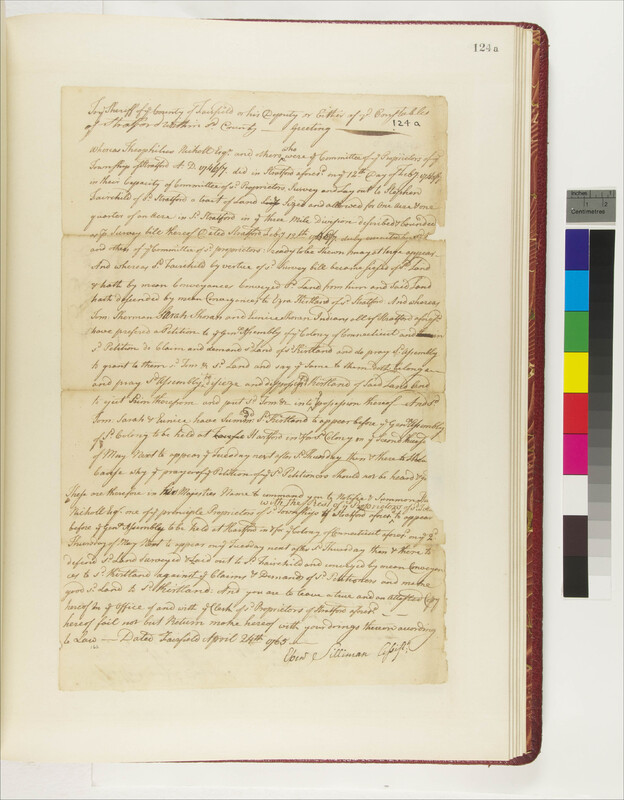 124a
To ye Sheriff of ye County of Fairfield or his Deputy or Either of ye Constables
of Stratford within sd County — Greeting —
124a
Whereas Theophilus Nichols Esqr and others who were ye Committee of ye Proprietors of ye
Township of Stratford A. D. 1746/7 did in Stratford aforesd on ye 12th Day of Feby 1746/7
in their Capacity of Committee of sd Proprietors Survey and lay out to Stephen
Fairchild of sd Stratford a tract of Land and allowed for one acre & one
quarter of an acre in sd Stratford in ye three Mile Division described & bounded
as pr Survey bill thereof Dated Stratford Feby 12th 1746/7 under
and of ye Committee of sd proprietors ready to be shewn may at large appear
And whereas sd Fairchild by virtue of sd Survey bill became of sd Land
& hath by mean Conveyances Conveyed sd Land from him and said Land
hath descended by mean Conveyances to Ezra Kirtland of sd Stratford And whereas
Tom Sherman Sarah Shoran and Eunice Shoran Indians all of Stratford aforesd
have prefered a Petition to ye Genll Assembly of ye Colony of Connecticut and
sd Petition do Claim and demand sd Land of sd Kirtland and do pray sd Assembly
to grant to them sd Tom & sd Land and say ye same to them Doth belong
and pray sd Assembly to and Kirtland of said Land and
to eject him therefrom and put sd Tom &c into possession thereof And sd
Tom Sarah & Eunice have Sumond sd Kirtland to appear before ye Genll Assembly
of sd Colony to be held at Hartford in & for sd Colony on ye Second Thursday
of May Next to appear ye Tuesday next after sd Thursday then & there to Shew
Cause why ye prayer of ye Petition of ye sd Petitioners should not be heard &c
These are therefore in his Majesties Name to command you to Notifie & Summon
with the Rest of ye Proprietors of sd
Nichols Esqr one of ye principle Proprietors of sd Township of Stratford aforesd to appear
before ye Genll Assembly to be held at Hartford in & for ye Colony of Connecticut aforesd on ye 2d
Thursday of May Next to appear on ye Tuesday next after sd Thursday then & there to
defend sd Land Surveyed & Laid out to sd Fairchild and conveyed by mean Conveyan
ces to sd Kirtland against ye Claims & Demands of sd Petitioners and make
good sd Land to sd Kirtland. And you are to leave a true and an attested Copy
hereof in ye Office of and with ye Clerk of sd Proprietors of Stratford aforesd
hereof fail not but Return make hereof with your doings therein according
to Law — Dated Fairfield April 24th 1763
Ebenr Silliman Assist
inches
1
Centimetres